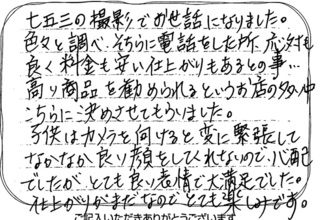 七五三の撮影でお世話になりました。
色々と調べ、そちらに電話をした所、応対も
良く料金も安い仕上がりもあるとの事…
高い商品を勧められるというお店の多い中
こちらに決めさせてもらいました。
子供はカメラを向けると変に緊張して
なかなか良い顔をしてくれないので心配
でしたが、とても良い表情で大満足でした。
仕上がりがまだなのでとても楽しみです。
ご記入いただきありがとうございます